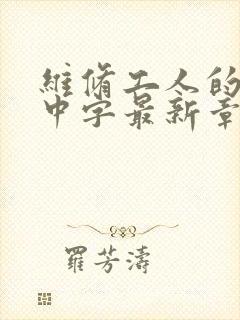 維脩工人的
中字最新章
羅芳濤